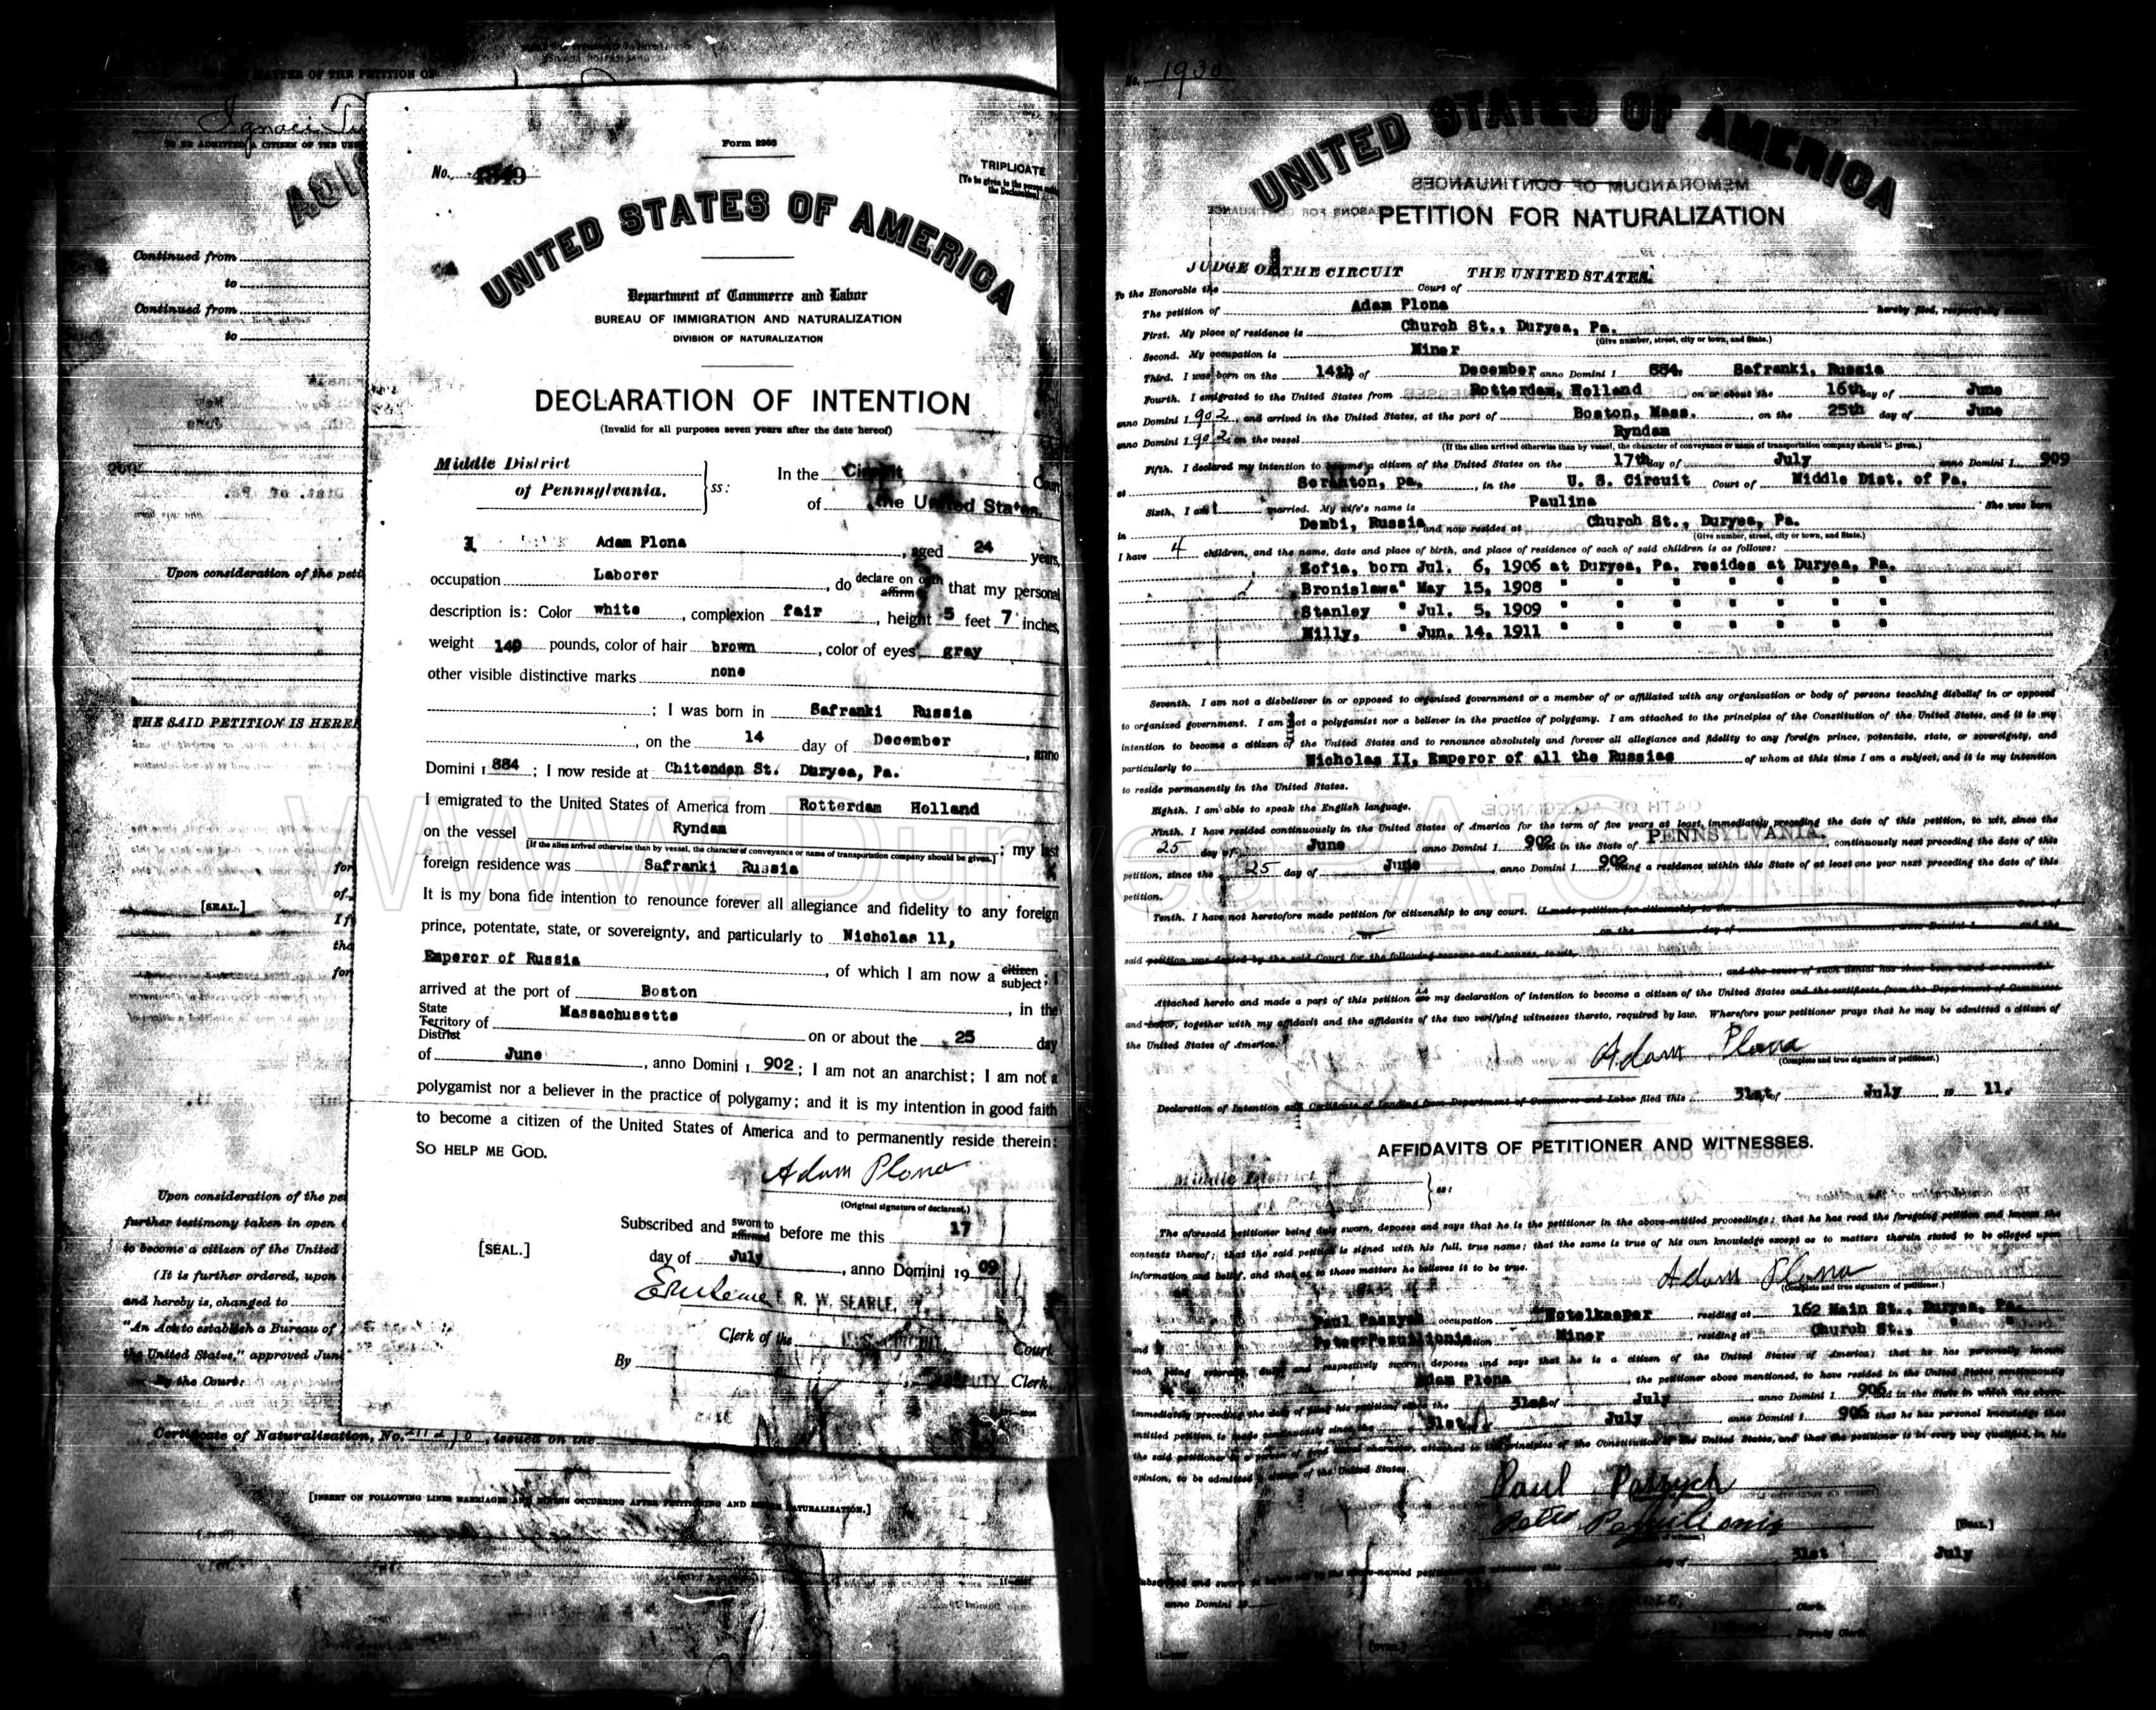 MATTER OF THE PETITION OF
Ignaci
TO BE ADMITTED A CITIZEN OF THE
Continued from
to
Continued from
to
Upon consideration of the peti
THE SAID PETITION IS HEREB
for
of
[SEAL.]
I f
tha
for
Upon consideration of the pe
further testimony taken in open
to become a citizen of the United
(It is further ordered, upon
and hereby is, changed to
"An Act to establish a Bureau of
the United States," approved June
By the Court:
Certificate of Naturalization, No. , issued on the
[INSERT ON FOLLOWING LINES MARRIAGES AND BIRTHS OCCURRING AFTER PETITIONING AND BEFORE NATURALIZATION.]
Form 2203
No. 4349
TRIPLICATE
[To be given to the person making the Declaration]
UNITED STATES OF AMERICA
Department of Commerce and Labor
BUREAU OF IMMIGRATION AND NATURALIZATION
DIVISION OF NATURALIZATION
DECLARATION OF INTENTION
(Invalid for all purposes seven years after the date hereof)
Middle District
of Pennsylvania. ss:
In the Circuit Court
of the United States.
I, Adam Plona, aged 24 years,
occupation Laborer, do declare on oath affirm that my personal
description is: Color white, complexion fair, height 5 feet 7 inches,
weight 140 pounds, color of hair brown, color of eyes gray
other visible distinctive marks none
; I was born in Safranki Russia
, on the 14 day of December, anno
Domini 1 884 ; I now reside at Chitenden St. Duryea, Pa.
I emigrated to the United States of America from Rotterdam Holland
on the vessel Ryndam ; my last
(If the alien arrived otherwise than by vessel, the character of conveyance or name of transportation company should be given.)
foreign residence was Safranki Russia
It is my bona fide intention to renounce forever all allegiance and fidelity to any foreign
prince, potentate, state, or sovereignty, and particularly to Nicholas 11,
Emperor of Russia, of which I am now a citizen subject; I
arrived at the port of Boston, in the
State Territory District of Massachusetts on or about the 25 day
of June, anno Domini 1 902; I am not an anarchist; I am not a
polygamist nor a believer in the practice of polygamy; and it is my intention in good faith
to become a citizen of the United States of America and to permanently reside therein:
SO HELP ME GOD.
Adam Plona
(Original signature of declarant.)
Subscribed and sworn to affirmed before me this 17
[SEAL.] day of July, anno Domini 19 09
E R. W. SEARLE,
Clerk of the U.S. Circuit Court.
By , DEPUTY Clerk.
No. 1930
UNITED STATES OF AMERICA
MEMORANDUM OF CONTINUANCES
PETITION FOR NATURALIZATION
JUDGE OF THE CIRCUIT THE UNITED STATES.
To the Honorable the Court of
The petition of Adam Plona hereby filed, respectfully
First. My place of residence is Church St., Duryea, Pa.
(Give number, street, city or town, and State.)
Second. My occupation is Miner
Third. I was born on the 14th day of December anno Domini 1 884, Safranki, Russia
Fourth. I emigrated to the United States from Rotterdam, Holland on or about the 16th day of June
anno Domini 1 902, and arrived in the United States, at the port of Boston, Mass. on the 25th day of June
anno Domini 1 902, on the vessel Ryndam
(If the alien arrived otherwise than by vessel, the character of conveyance or name of transportation company should be given.)
Fifth. I declared my intention to become a citizen of the United States on the 17th day of July, anno Domini 1 909
at Scranton, pa., in the U. S. Circuit Court of Middle Dist. of Pa.
Sixth. I am married. My wife's name is Paulina She was born
in Dembi, Russia and now resides at Church St., Duryea, Pa.
(Give number, street, city or town, and State.)
I have 4 children, and the name, date and place of birth, and place of residence of each of said children is as follows:
Zofia, born Jul. 6, 1906 at Duryea, Pa. resides at Duryea, Pa.
Bronislawa " May 15, 1908 " " " " " "
Stanley " Jul. 5, 1909 " " " " " "
Willy, " Jun. 14, 1911 " " " " " "
Seventh. I am not a disbeliever in or opposed to organized government or a member of or affiliated with any organization or body of persons teaching disbelief in or opposed
to organized government. I am not a polygamist nor a believer in the practice of polygamy. I am attached to the principles of the Constitution of the United States, and it is my
intention to become a citizen of the United States and to renounce absolutely and forever all allegiance and fidelity to any foreign prince, potentate, state, or sovereignty, and
particularly to Nicholas II, Emperor of all the Russias of whom at this time I am a subject, and it is my intention
to reside permanently in the United States.
Eighth. I am able to speak the English language.
Ninth. I have resided continuously in the United States of America for the term of five years at least, immediately preceding the date of this petition, to wit, since the
25 day of June, anno Domini 1 902 and in the State of PENNSYLVANIA, continuously next preceding the date of this
petition, since the 25 day of June, anno Domini 1 902, being a residence within this State of at least one year next preceding the date of this
petition.
Tenth. I have not heretofore made petition for citizenship to any court. (I made petition for citizenship to the Court of
on the day of , anno Domini 1 and the
said petition was denied by the said Court for the following reasons and causes, to wit,
, and the cause of such denial has since been cured or removed.
Attached hereto and made a part of this petition are is my declaration of intention to become a citizen of the United States and the certificate from the Department of Commerce
and Labor, together with my affidavit and the affidavits of the two verifying witnesses thereto, required by law. Wherefore your petitioner prays that he may be admitted a citizen of
the United States of America.
Adam Plona
(Complete and true signature of petitioner.)
Declaration of Intention and Certificate of Landing from Department of Commerce and Labor filed this 31st of July, 19 11.
AFFIDAVITS OF PETITIONER AND WITNESSES.
Middle District
ss:
The aforesaid petitioner being duly sworn, deposes and says that he is the petitioner in the above-entitled proceedings; that he has read the foregoing petition and knows the
contents thereof; that the said petition is signed with his full, true name; that the same is true of his own knowledge except as to matters therein stated to be alleged upon
information and belief, and that as to those matters he believes it to be true.
Adam Plona
(Complete and true signature of petitioner.)
Paul Pasrych occupation Hotelkeeper, residing at 162 Main St., Duryea, Pa.
and Peter occupation Miner, residing at Church St., " "
each being severally, duly, and respectively sworn, deposes and says that he is a citizen of the United States of America; that he has personally known
Adam Plona, the petitioner above mentioned, to have resided in the United States continuously
immediately preceding the date of filing his petition since the 31st of July, anno Domini 1 906 and in the State in which the above-
entitled petition is made continuously since the 31st July, anno Domini 1 906 that he has personal knowledge that
the said petitioner is a person of good moral character, attached to the principles of the Constitution of the United States, and that the petitioner is in every way qualified, in his
opinion, to be admitted a citizen of the United States.
Paul Pasrych
[SEAL.]
Subscribed and sworn to before me by the above-named petitioner and witnesses this 31st day of July
anno Domini 19
Clerk.
Deputy Clerk.
www.DuryeaPA.Com